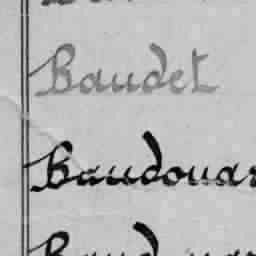 Baudet
Baudouar